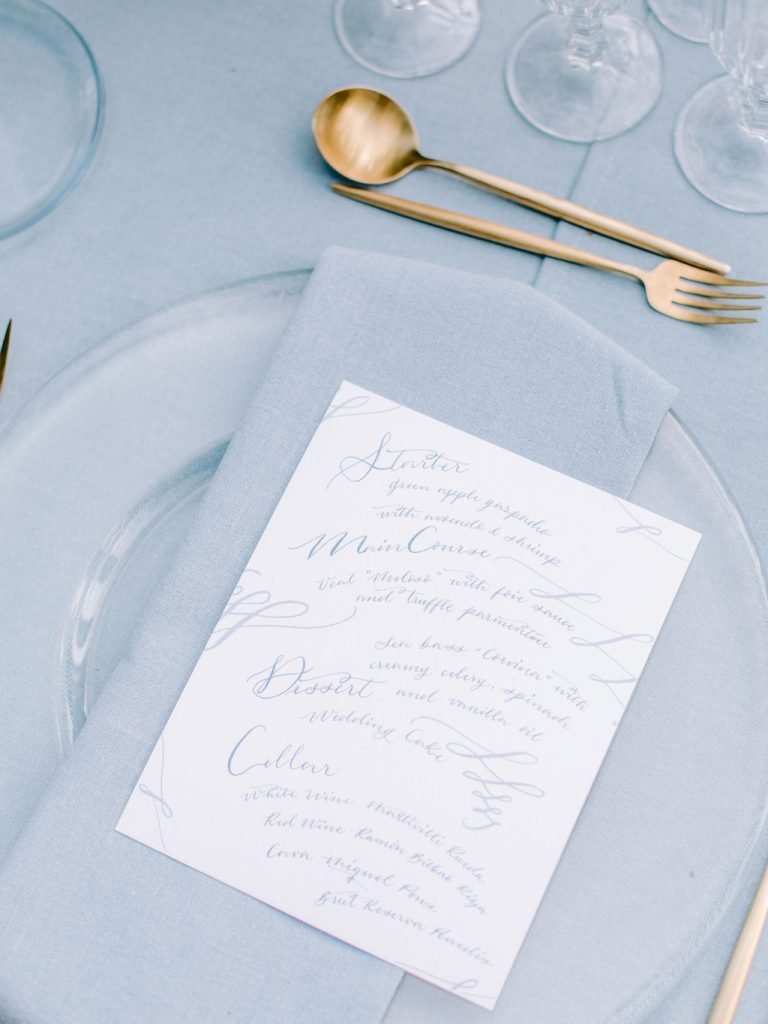 Starter
green apple gaspacho
with avocado & shrimp
Main Course
Veal "Meloso" with foie sauce
and truffle parmentier
Sea bass "Corvina" with
creamy celery, spinach
and vanilla oil
Dessert
Wedding Cake
Cellar
White Wine: Martivillí Rueda
Red Wine: Ramón Bilbao Rioja
Cava: Miquel Pons
Brut Reserva